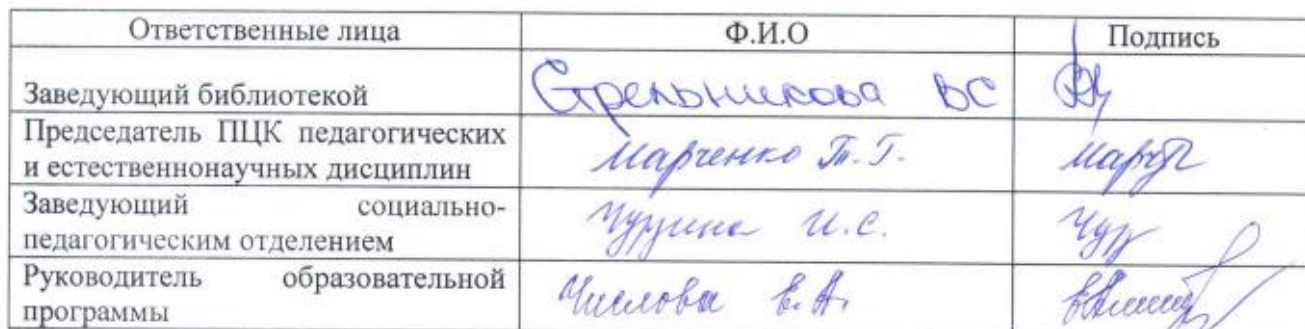 Ответственные лица Ф.И.О Подпись
Заведующий библиотекой Стрельникова ВС
Председатель ПЦК педагогических
и естественнонаучных дисциплин Марченко Т.Г.
Заведующий социально-
педагогическим отделением И.С.
Руководитель образовательной
программы Числова Е.А.